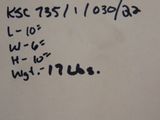 KSC 735/1/030/22
L-10"
W-6"
H-10"
Wgt.-17 Lbs.